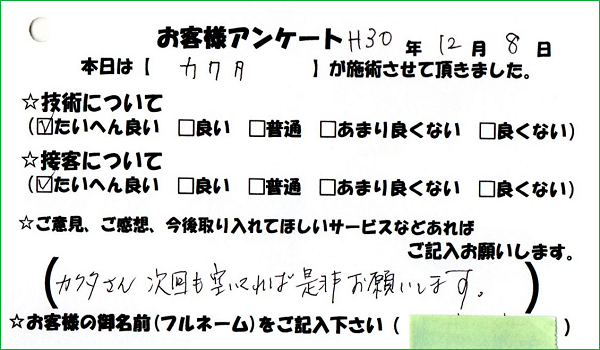 お客様アンケート H30 年 12 月 8 日
本日は【 カクタ 】が施術させて頂きました。
☆技術について
(☑たいへん良い □良い □普通 □あまり良くない □良くない)
☆接客について
(☑たいへん良い □良い □普通 □あまり良くない □良くない)
☆ご意見、ご感想、今後取り入れてほしいサービスなどあれば
ご記入お願いします。
(カクタさん 次回も空いてれば是非お願いします。)
☆お客様の御名前(フルネーム)をご記入下さい( )